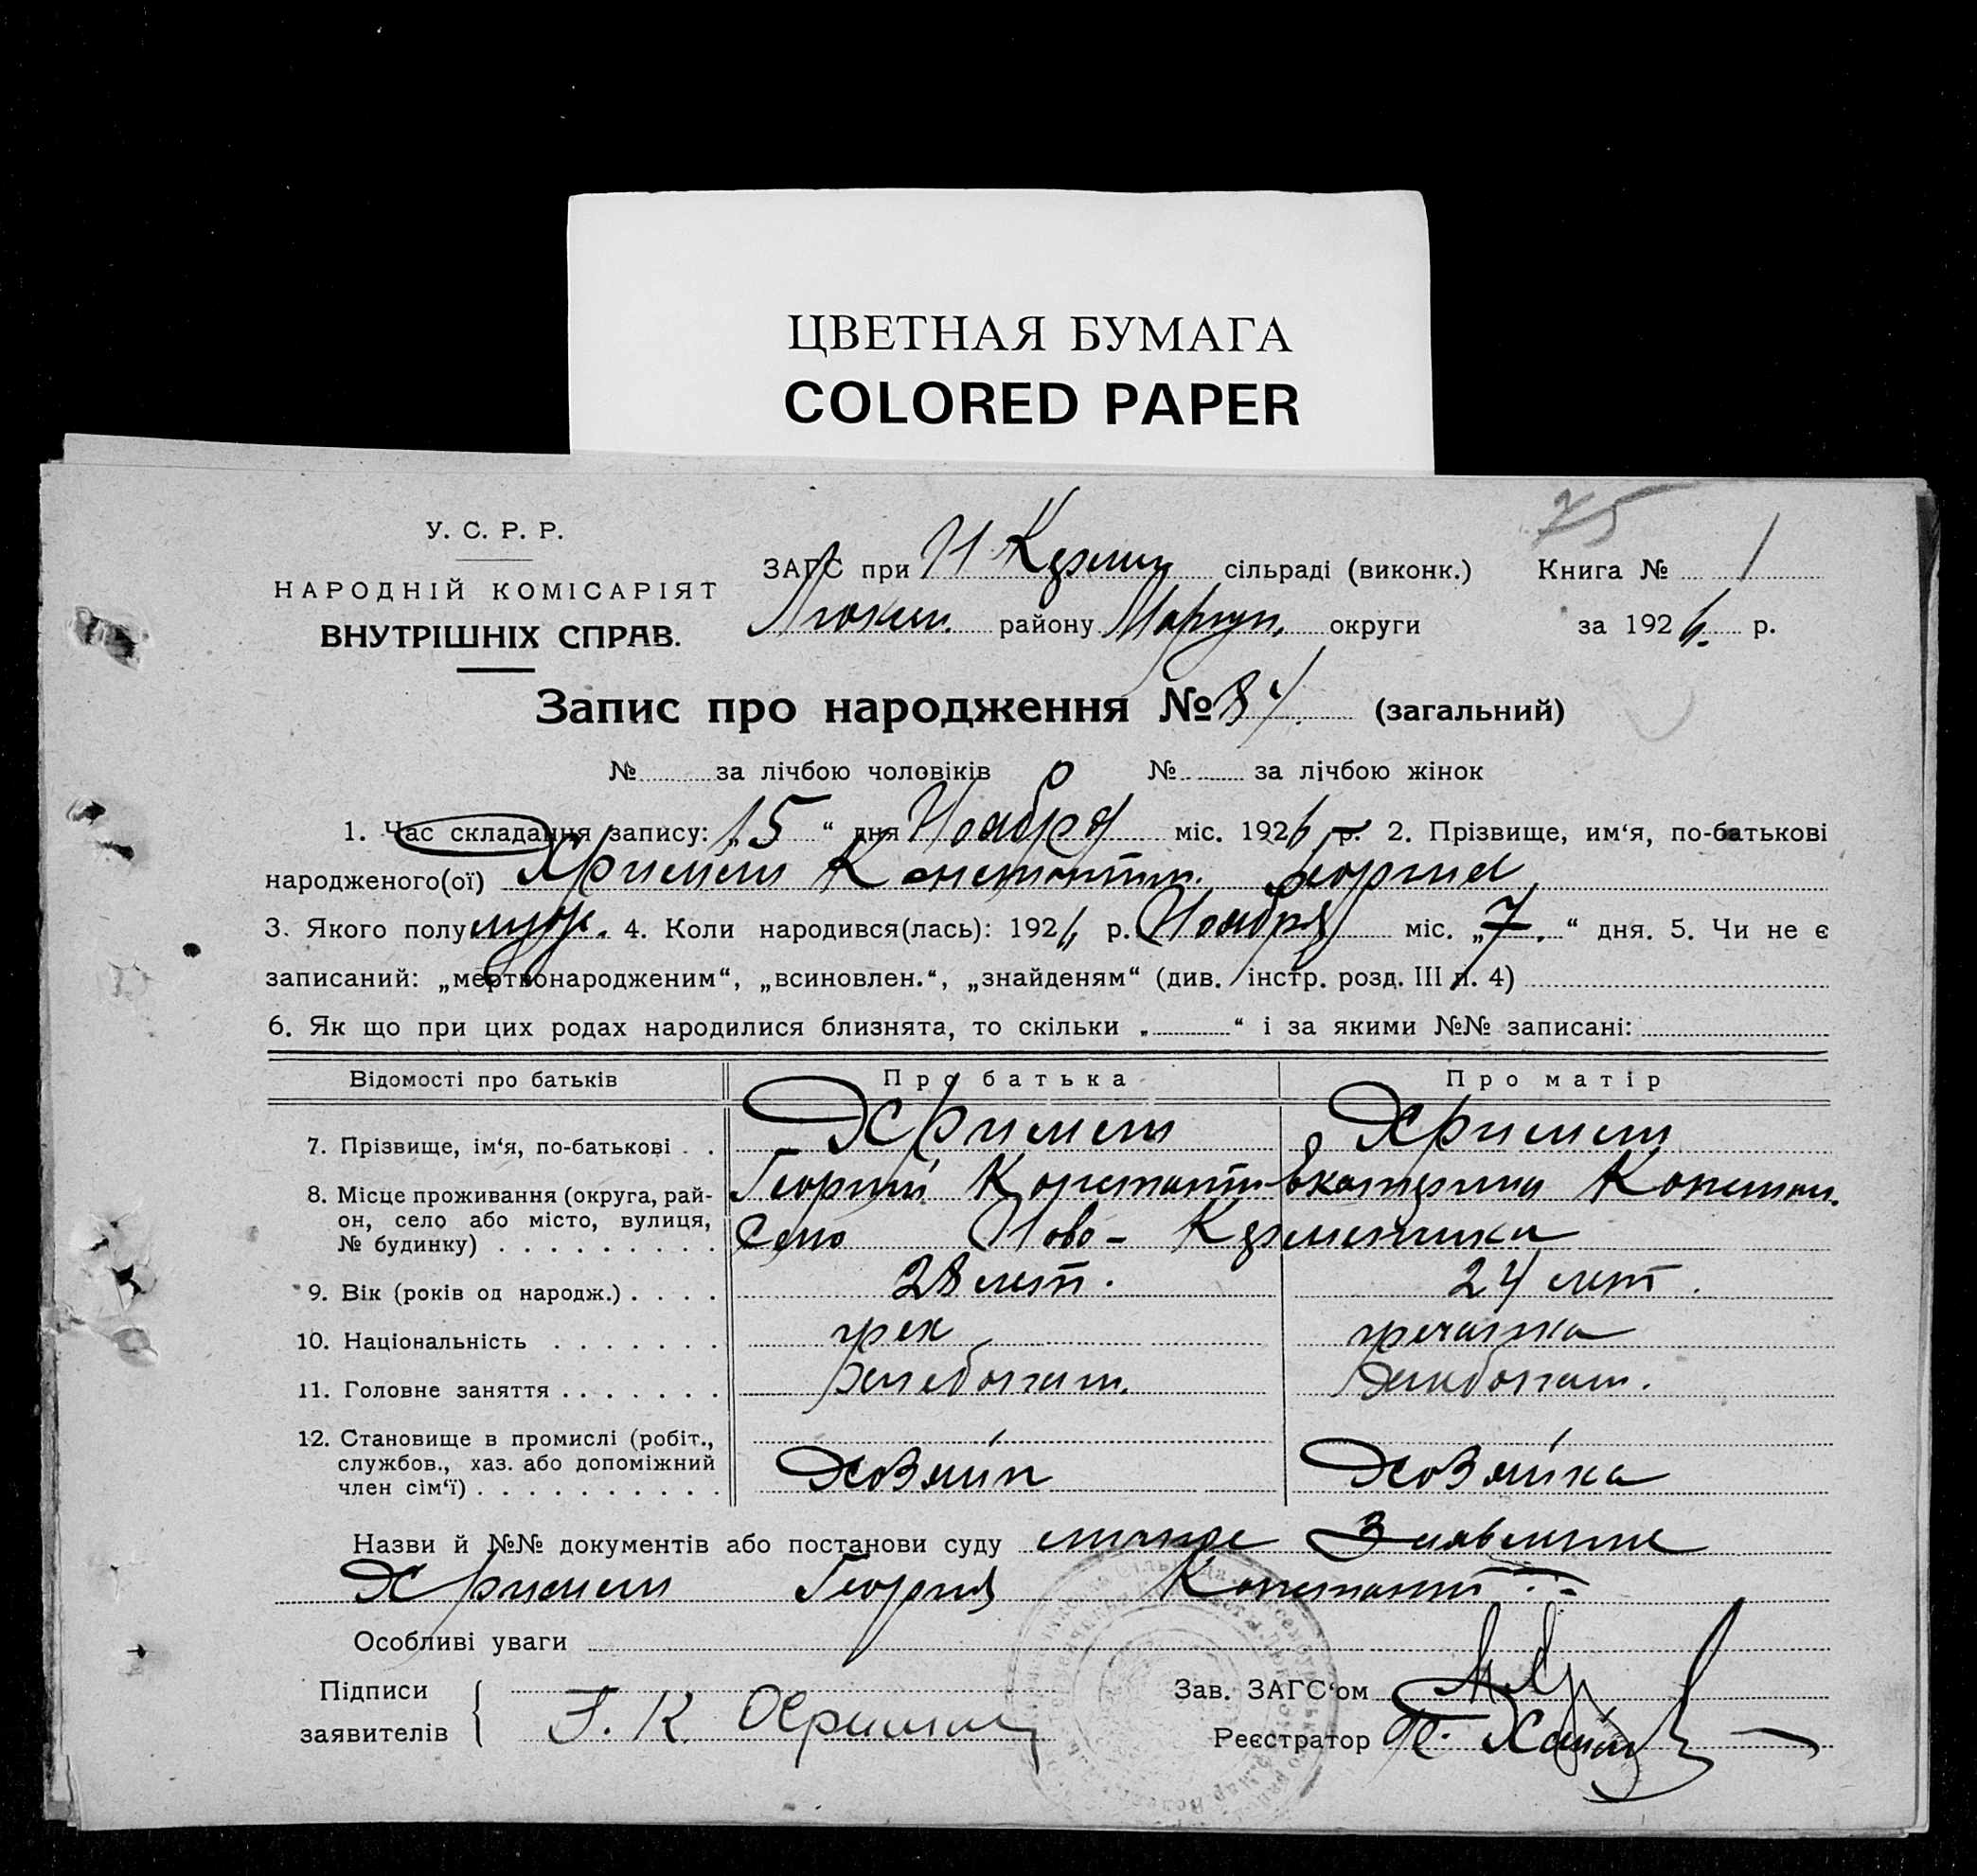 ЦВЕТНАЯ БУМАГА
COLORED PAPER
75
У. С. Р. Р.
НАРОДНІЙ КОМІСАРІЯТ
ВНУТРІШНІХ СПРАВ.
ЗАГС при Н Керменч сільраді (виконк.) Книга № 1
району Мариуп. округи за 1926. р.
Запис про народження № 84. (загальний)
№ за лічбою чоловіків № за лічбою жінок
1. Час складання запису: „15“ дня Ноября міс. 1926 р. 2. Прізвище, им‘я, по-батькові
народженого(ої) Константин Георгиев
3. Якого полу муж. 4. Коли народився(лась): 1926 р. Ноября міс. „7.“ дня. 5. Чи не є
записаний: „мертвонародженим“, „всиновлен.“, „знайденям“ (див. інстр. розд. III п. 4)
6. Як що при цих родах народилися близнята, то скільки „ “ і за якими №№ записані:
Відомості про батьків Про батька Про матір
7. Прізвище, ім‘я, по-батькові
Георгий Константин Екатерина Констан.
8. Місце проживання (округа, рай-
он, село або місто, вулиця,
№ будинку) Село Ново-Керменчика
9. Вік (років од народж.) 28 лет. 24 лет.
10. Національність грек гречанка
11. Головне заняття хлебопаш. хлебопаш.
12. Становище в промислі (робіт.,
службов., хаз. або допоміжний
член сім‘ї) Хозяин Хозяйка
Назви й №№ документів або постанови суду личное Заявление
Георгия Констант
Особливі уваги
Підписи
заявителів Г. К.
Зав. ЗАГС‘ом
Реєстратор